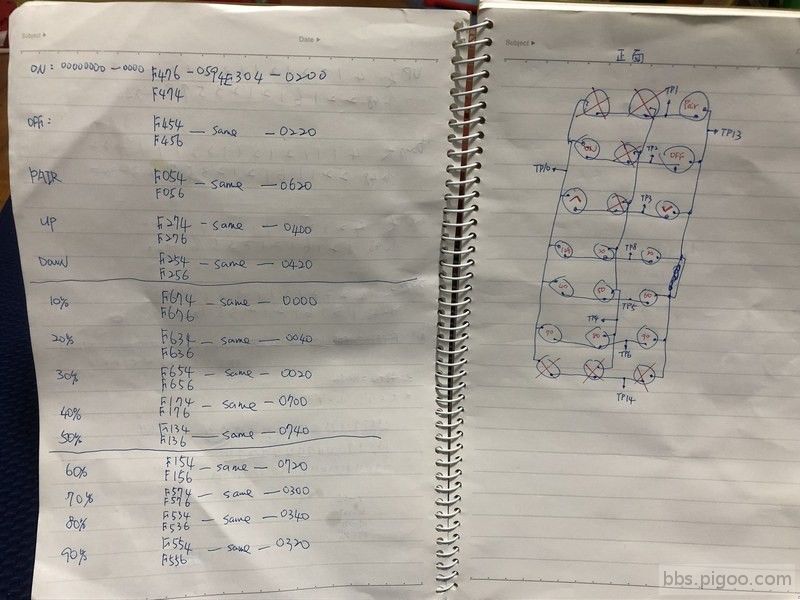 Subject ▸
Date ▸
ON: 00000000 - 0000 F476 - 0594E304 - 0200
F474
OFF: F454 - same - 0220
F456
PAIR F054 - same - 0620
F056
UP F274 - same - 0400
F276
DOWN F254 - same - 0420
F256
10% F674 - same - 0000
F676
20% F634 - same - 0040
F636
30% F654 - same - 0020
F656
40% F174 - same - 0700
F176
50% F134 - same - 0740
F136
60% F154 - same - 0720
F156
70% F574 - same - 0300
F576
80% F534 - same - 0340
F536
90% F554 - same - 0320
F556
Subject ▸
正面
TP1
Pair
TP13
ON
TP2
OFF
TP10
TP3
TP8
TP5
TP4
80
90
TP6
TP14
bbs.pigoo.com